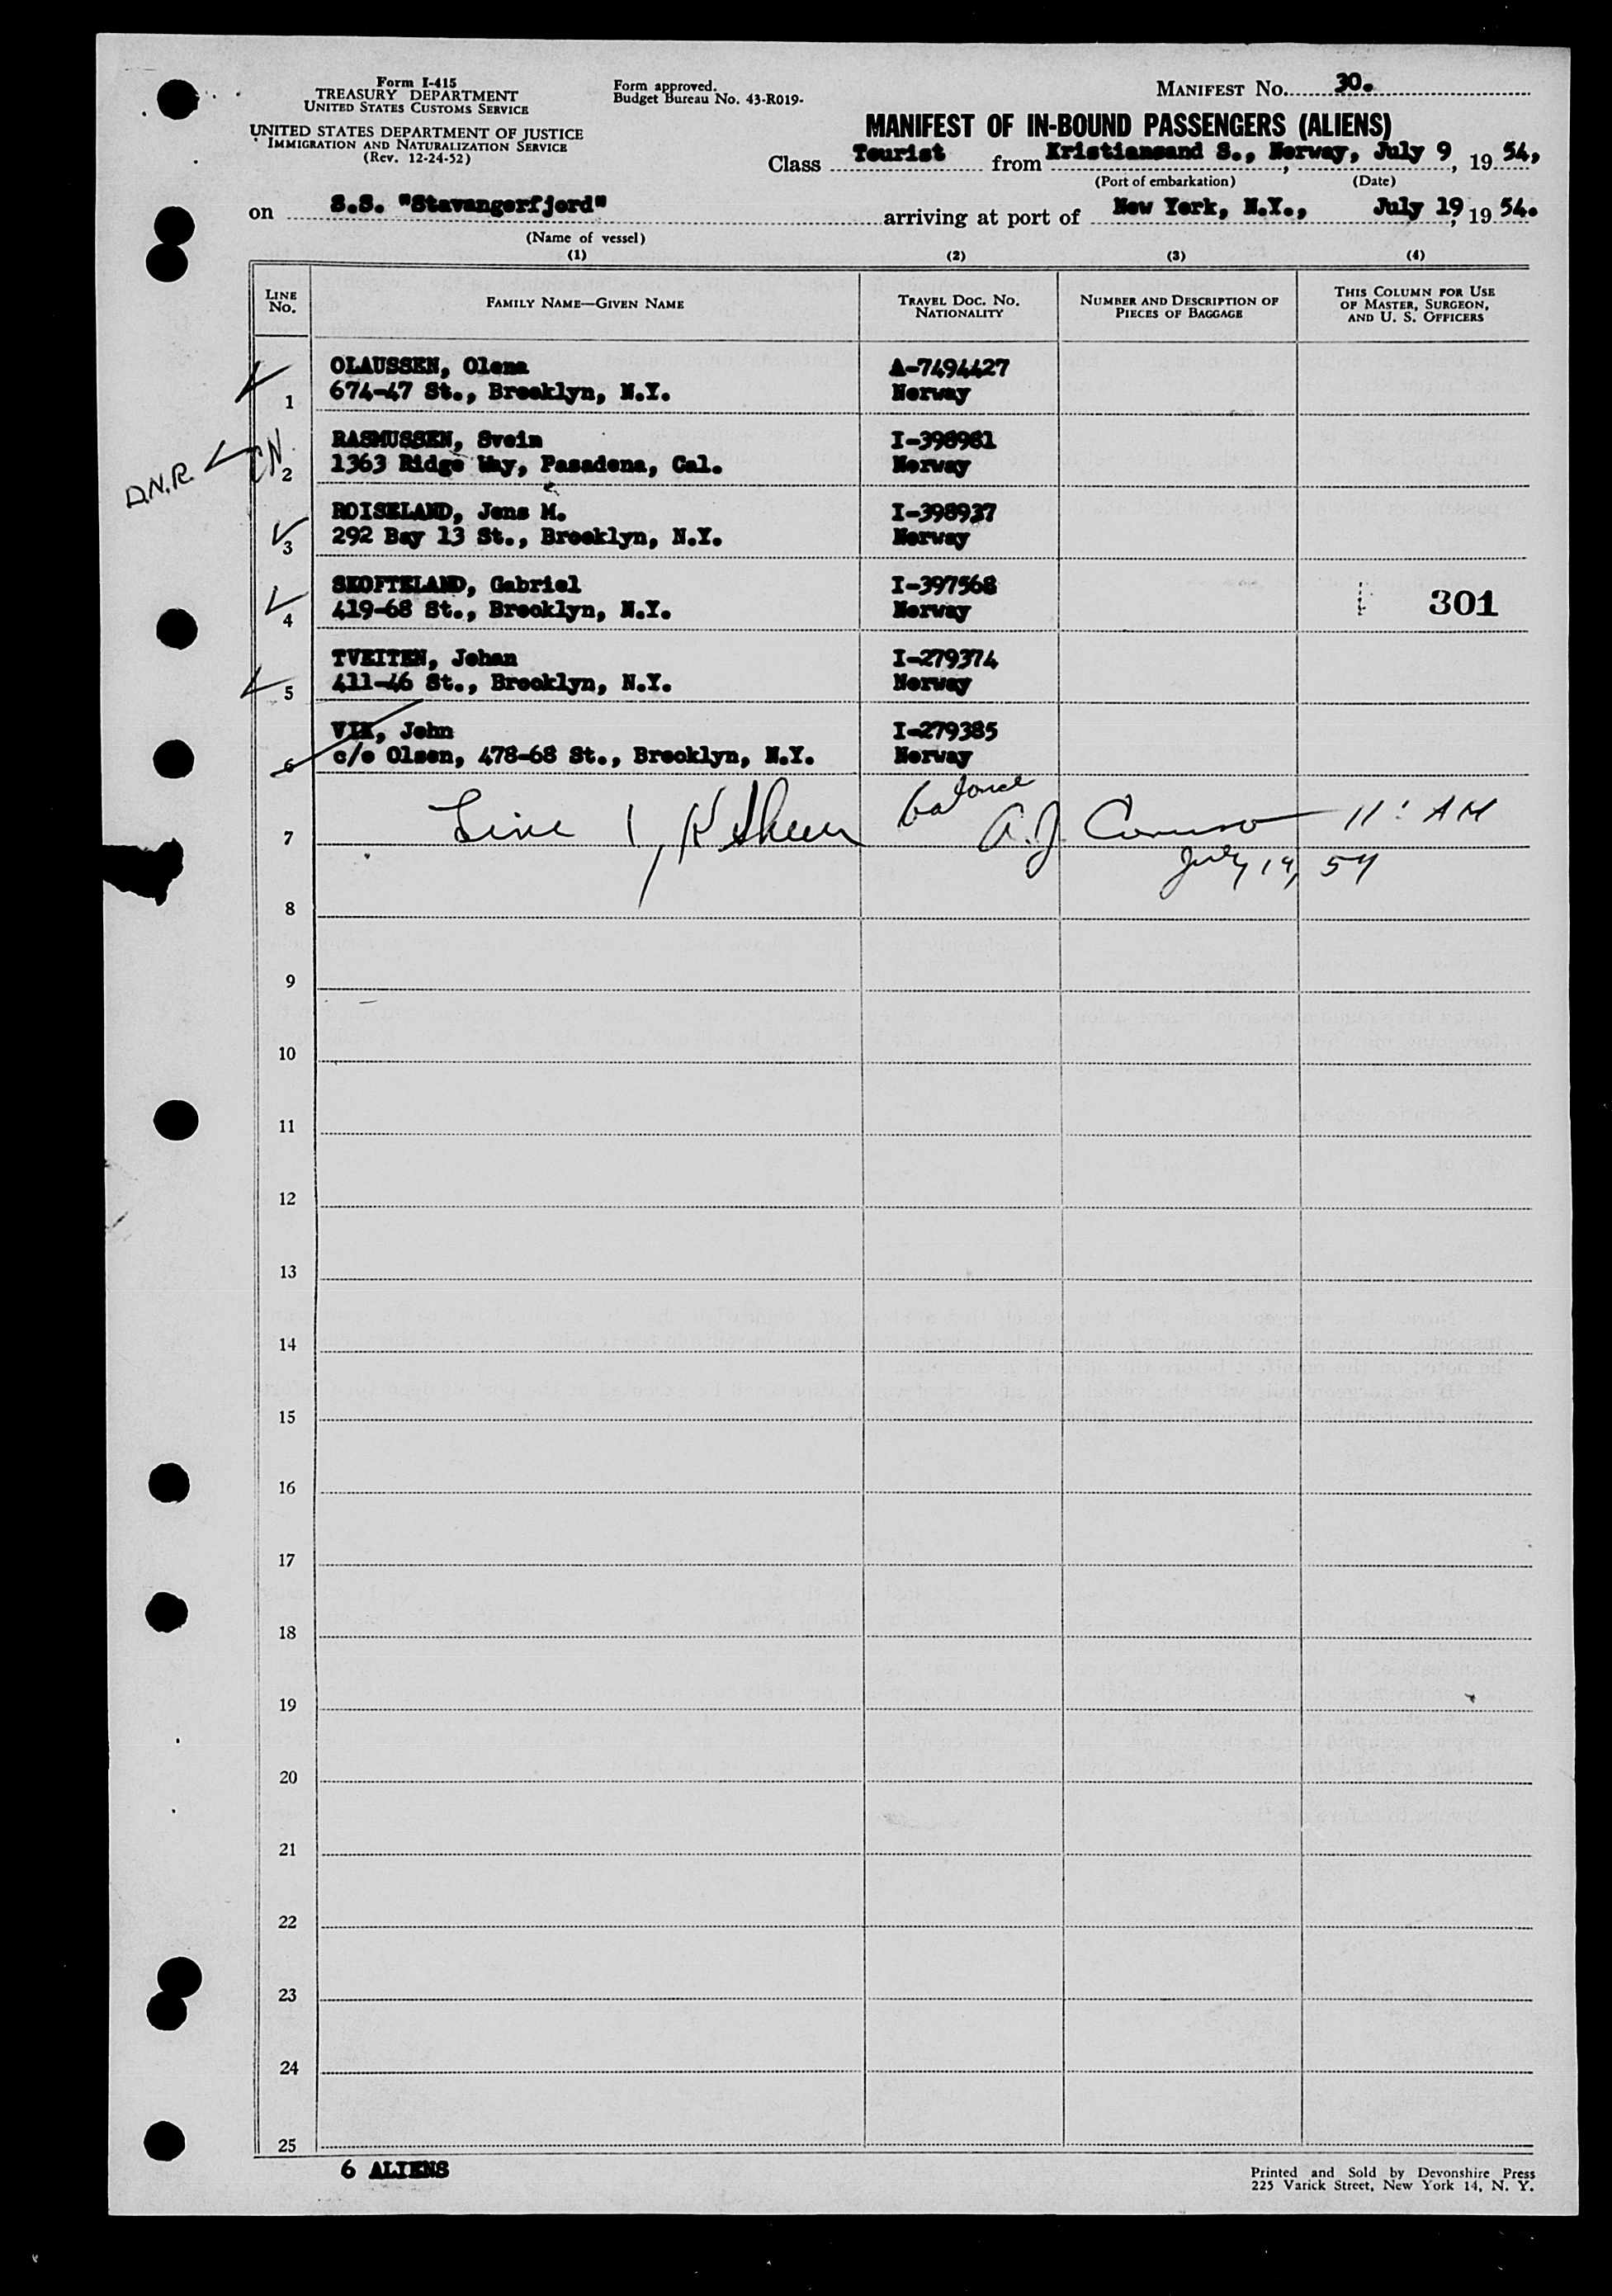 Form I-415
TREASURY DEPARTMENT
UNITED STATES CUSTOMS SERVICE
UNITED STATES DEPARTMENT OF JUSTICE
IMMIGRATION AND NATURALIZATION SERVICE
(Rev. 12-24-52)
Form approved.
Budget Bureau No. 43-R019-
MANIFEST NO. 30.
MANIFEST OF IN-BOUND PASSENGERS (ALIENS)
Class Tourist from Kristiansand S., Norway, July 9, 1954,
(Port of embarkation) (Date)
on S.S. "Stavangerfjord" arriving at port of New York, N.Y., July 19, 1954.
(Name of vessel)
(1) (2) (3) (4)
LINE NO. FAMILY NAME—GIVEN NAME TRAVEL DOC. NO. NATIONALITY NUMBER AND DESCRIPTION OF PIECES OF BAGGAGE THIS COLUMN FOR USE OF MASTER, SURGEON, AND U. S. OFFICERS
OLAUSSEN, Olena A-7494427
1 674-47 St., Brooklyn, N.Y. Norway
RASMUSSEN, Svein I-398981
D.N.R. CN 2 1363 Ridge Way, Pasadena, Cal. Norway
ROISELAND, Jens M. I-398937
3 292 Bay 13 St., Brooklyn, N.Y. Norway
SKOFTELAND, Gabriel I-397568
4 419-68 St., Brooklyn, N.Y. Norway 301
TVEITEN, Johan I-279374
5 411-46 St., Brooklyn, N.Y. Norway
VIK, John I-279385
6 c/o Olsen, 478-68 St., Brooklyn, N.Y. Norway
7 Line 1, balance A.J. Caruso 11: AM
July 19, 54
8
9
10
11
12
13
14
15
16
17
18
19
20
21
22
23
24
25
6 ALIENS
Printed and Sold by Devonshire Press
225 Varick Street, New York 14, N. Y.